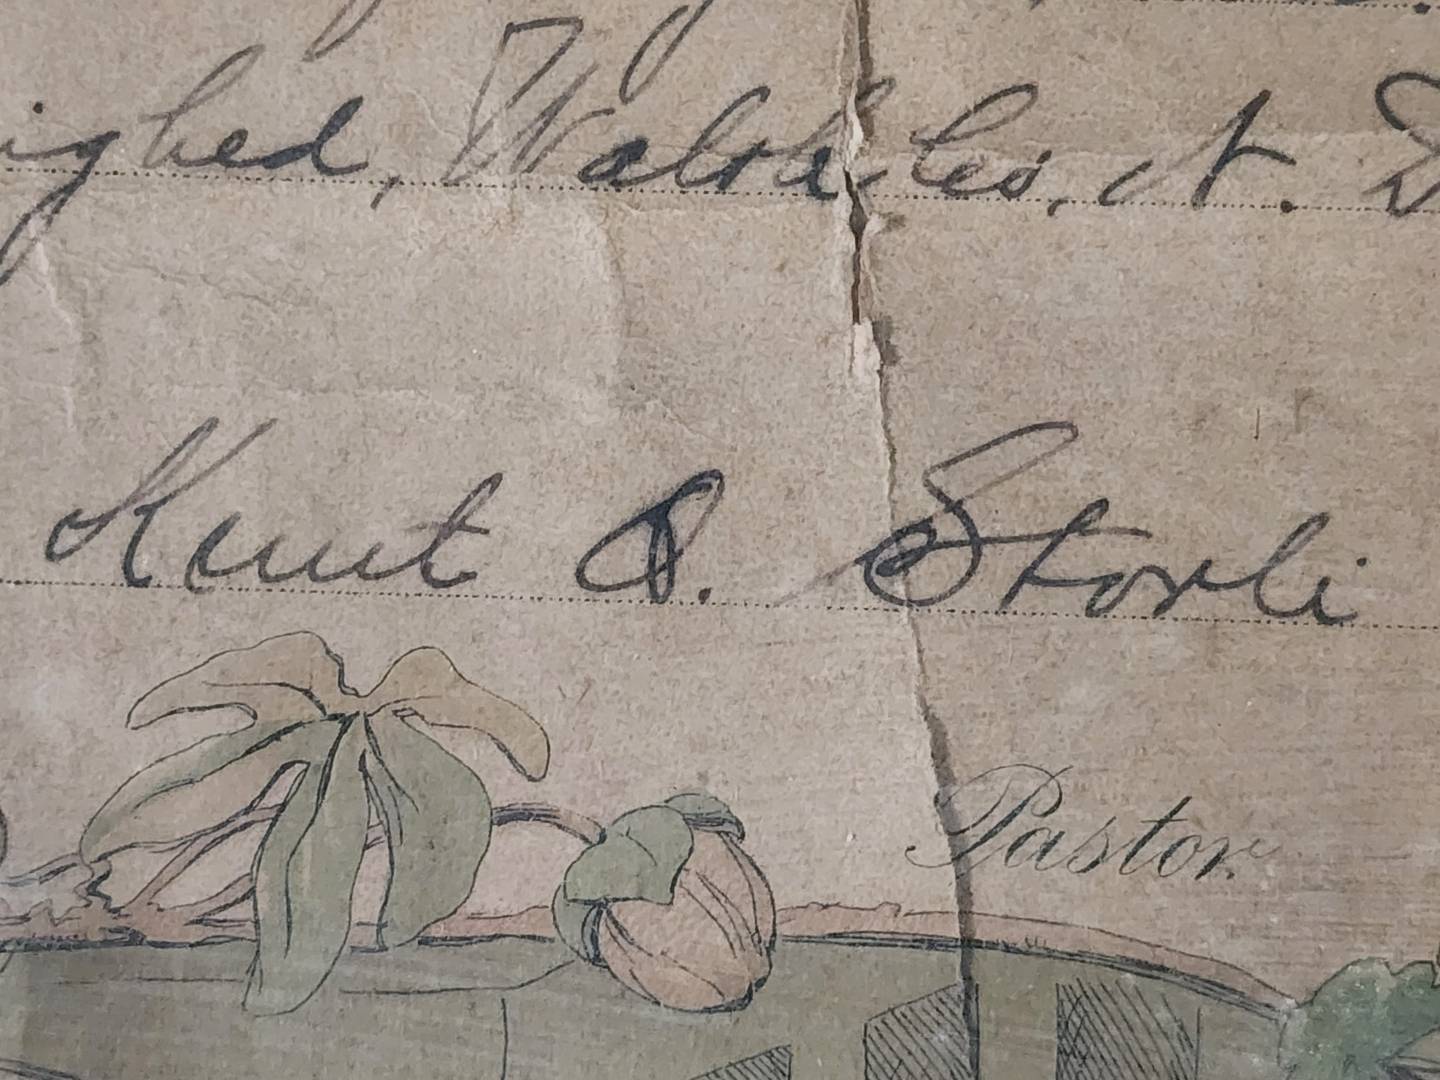 ighed, Walsh Co, N. D
Knut O. Storli
Pastor.